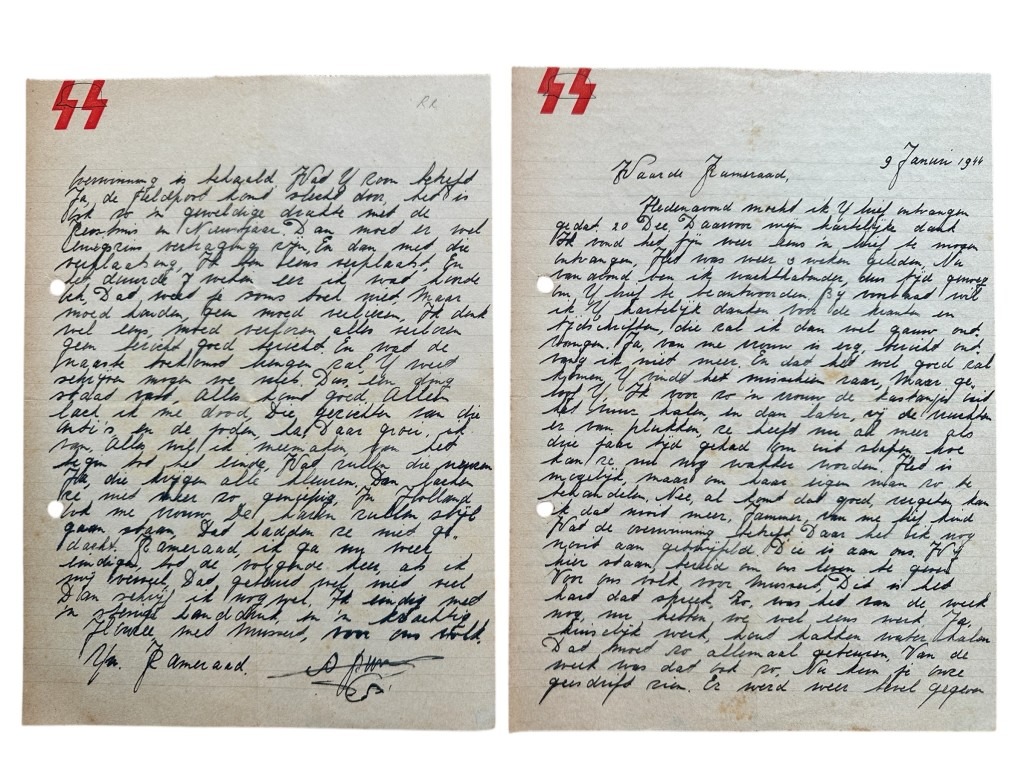 SS
RR
overwinning is behaald. Wat U zoon betreft
Ja, de Veldpost komt slecht door, het is
ook zo 'n geweldige drukte met de
Kerstmis en Nieuwjaar. Dan moed er wel
enigzins vertraging zijn. En dan met die
verplaatsing, Ik ben eens verplaatst. En
het duurde 7 weken eer ik wat hoorde
ook. Dat, weet je soms ook niet. Maar
moed houden, geen moed verliezen. Ik denk
wel eens, moed verloren alles verloren
geen bericht goed bericht. En wat de
naaste toekomst brengen zal, U weet
schrijven mogen we niet. Dus, een ding
is dat vast, alles komt goed, Allen
lach ik me dood, die gezichten van die
anti's, en de joden, ha, Daar groei ik
van. Alles wil ik meemaken, van het
begin tot het einde, Wat zullen die
Ha, die krijgen alle kleuren. Dan lachen
ze, niet meer zo gemeen. In Holland
ook me vrouw, de haren zullen stijl
gaan, staan, Dat hadden ze niet ge"
dacht. Kameraad, ik ga nu weer
eindigen, tot de volgende keer, als ik
mij verveel, Dat gebeurd wel, niet veel
Dan schrijf ik nog wel. Ik eindig met
'n stevige handdruk, en 'n krachtig
Houzee, met Mussert, voor ons volk.
Uw. Kameraad.
SS
9 Januri 1944
Waarde Kameraad,
Hedenavond mocht ik U brief ontvangen
gedat. 20 Dec. Daarvoor mijn hartelijke dank
Ik vind het fijn weer eens 'n brief te mogen
ontvangen, Het was weer 3 weken geleden. Nu
van avond ben ik wachthebbender, dus tijd genoeg
om U brief te beantwoorden. Bij voorbaat wil
ik U hartelijk danken voor de kranten en
tijdschriften, die zal ik dan wel gauw ont.
vangen. Ja, van me vrouw is erg, bericht ont
vang ik niet meer. En dat het nog goed zal
komen, U vindt het misschien raar, Maar ge.
loof U, Ik voor zo 'n vrouw de kastanjes uit
het vuur halen, en dan later, zij de vruchten
er van plukken, ze heeft nu al meer als
drie jaar tijd gehad om uit slapen hoe
kan ze nu nog wakker worden. Het is
mogelijk, maar om haar eigen man zo te
behandelen. Nee, al komt dat goed, vergeten kan
ik dat nooit meer, Jammer, van me lief kind
Wat de overwinning betreft, Daar heb ik nog
nooit aan getwijfeld. Die is aan ons. Wij
hier staan, bereid om ons leven te geven
Voor ons volk voor Mussert, Dit is het
hart dat spreekt. Zo, was het van de week
nog, nu hebben, we wel eens werk. Ja,
huiselijk werk, hout hakken water halen
Dat moet zo allemaal gebeuren. Van de
week was dat ook zo. Nu kun je onze
geesdrift zien. Er werd weer bevel gegeven